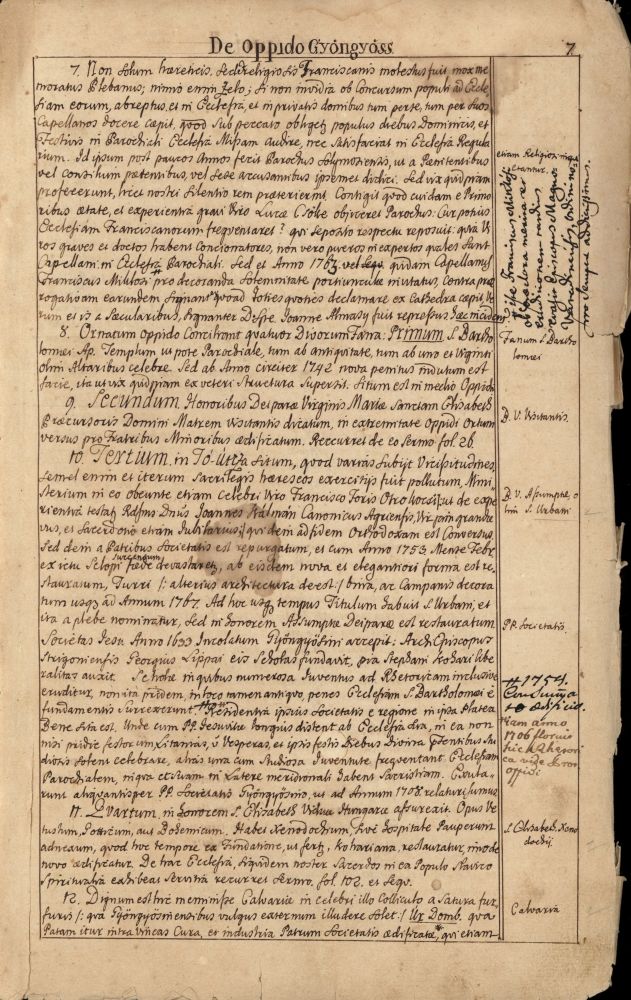 De Oppido Gyöngyöss
7
7. Non solum hæreticis, sed Religiosis Franciscanis molestus fuit mox me
moratus Plebanus; nimio enim zelo; si non invidia ob Concursum populi ad Eccle
siam eorum, abreptus, et in Ecclesia, et in privatis domibus tum per se, tum per suos
Capellanos docere cæpit, quod sub peccato obliget populus diebus Dominicis, et
Festivis in Parochiali Ecclesia Missam audire, nec satisfaciat in Ecclesia Regula
rium. Id ipsum post paucos Annos fecit Parochus Solymosiensis, ut a Penitentibus
vel consilium petentibus, vel sese accusantibus ipsemet didici. Sed vix quidpiam
profecerunt, hæc nostri silentio rem præterierunt. Contigit quod cuidam e Primo
ribus ætate, et experientia gravi Viro Lucæ Csöke objiceret Parochus: Cur potius
Ecclesiam Franciscanorum frequentaret? qui seposito respectu reposuit: quia Vi
ros graves et doctos habent Concionatores, non vero pueros inexpertos quales sunt
Capellani in Ecclesia Parochiali. Sed et Anno 1763 vel sequ. quidam Capellanus
Franciscus Miklosi pro decoranda solemnitate portiunculæ invitatus, Contra præ
rogativam earundem signant quoad totres quoties declamare ex Cathedra cæpit, Ve
rum et is a Sæcularibus, signanter Dnste Joanne Almasy fuit repressus
8. Ornatum oppido Conciliant quatuor Divorum Fana: Primum S. Bartho
lomæi Ap. Templum utpote Parochiale, tum ab antiquitate, tum ab uno et viginti
olim Altaribus celebre. Sed ab Anno circiter 1742 nova penitus indutum est
facie, ita ut vix quidpiam ex veteri structura supersit. Situm est in medio Oppidi
9. Secundum. Honoribus Deiparæ Virginis Mariæ Sanctam Elisabeth
Præcursoris Domini Matrem Visitantis dicatum, in extremitate Oppidi Ortum
versus pro Fratribus Minoribus ædificatum. Reccurret de eo Sermo fol. 26.
10. Tertium. in Tó-Utza situm, quod varias subijt vicissitudines,
semel enim et iterum sacrilegis hæreseos exercitijs fuit pollutum, Mini
sterium in eo obeunte etiam celebri Viro Francisco Foris Otrokocsi, ut de expe
rientia testatus Rdsmus Dnus Joannes Kalmán Canonicus Agriensis, Vir jam grandæ
vus, et Sacerdotio etiam Jubilarius, qui dein ad fidem Orthodoxam est Conversus,
Sed dein a Patribus Societatis est repurgatum, et cum Anno 1753 Mense Febr.
ex ictu Sclopi surgendum fæde devastaretur, ab eisdem nova et elegantiori forma est re
stauratum, Turri /: alterius architectura deest:/ bina, ac Campanis decora
tum usque ad Annum 1767. Ad hoc usque tempus Titulum habuit S. Urbani, et
ita a plebe nominatur, sed in honorem Assumptæ Deiparæ est restauratum
Societas Jesu Anno 1633 Incolatum Gyöngyösini accepit: Archi Episcopus
Strigoniensis Georgius Lippai eis scholas fundavit, pia Stephani Kohari libe
ralitas auxit. Scholæ in quibus numerosa Juventus ad Rhetoricam inclusive
eruditur, non ita pridem, in loco tamen antiquo, penes Ecclesiam S. Bartholomæi è
fundamentis surrexerunt. # Residentia ipsius Societatis è regione in ipsa Platea
bene sita est. Unde cum PP. Jesuitæ longius distent ab Ecclesia sua, in ea non
nisi pridie festorum Litanias, & Vesperas, et ipsis festis diebus Divina petentibus stu
diosis solent celebrare, alias una cum studiosa Juventute frequentant Ecclesiam
Parochialem, in qua et suam in latere meridionali habent Sacristiam. Exula
runt aliquantisper PP. Societatis Gyöngyösino, ut ad Annum 1708 relaturi sumus
11. Quartum, in honorem S. Elisabeth Viduæ Hungariæ assurexit. Opus Ve
tustum, Gotticum, aut Bohemicum. Habet Xenodochium, sive hospitale Pauperum
adnexum, quod hoc tempore ex fundatione, ut fertur, Kohariana, restauratur, imo de
novo ædificatur. De hac Ecclesia, siquidem noster Sacerdos in ea Populo Slavico
Spiritualia exhibeat servitia recurret sermo, fol. 102. et sequ.
12. Dignum est hic meminisse Calvariæ in celebri illo Colliculo a satura fur
furis /: qua Gyöngyösinensibus vulgus externum illudere solet:/ Ur Domb. qua
Patam itur intra Vineas Cura, et industria Patrum Societatis ædificatæ,* qui etiam
etiam Religiosi
Fanum S. Bartho
lomæi
B. V. Visitantis.
B. V. Assumptæ, o
lim S. Urbani
PP. Societatis.
# 1754.
Consumma
to ædificio.
etiam anno
1706 floruis
se hic Rhetori
ca vide
oppidi
S. Elisabeth. Xeno
dochij.
Calvaria